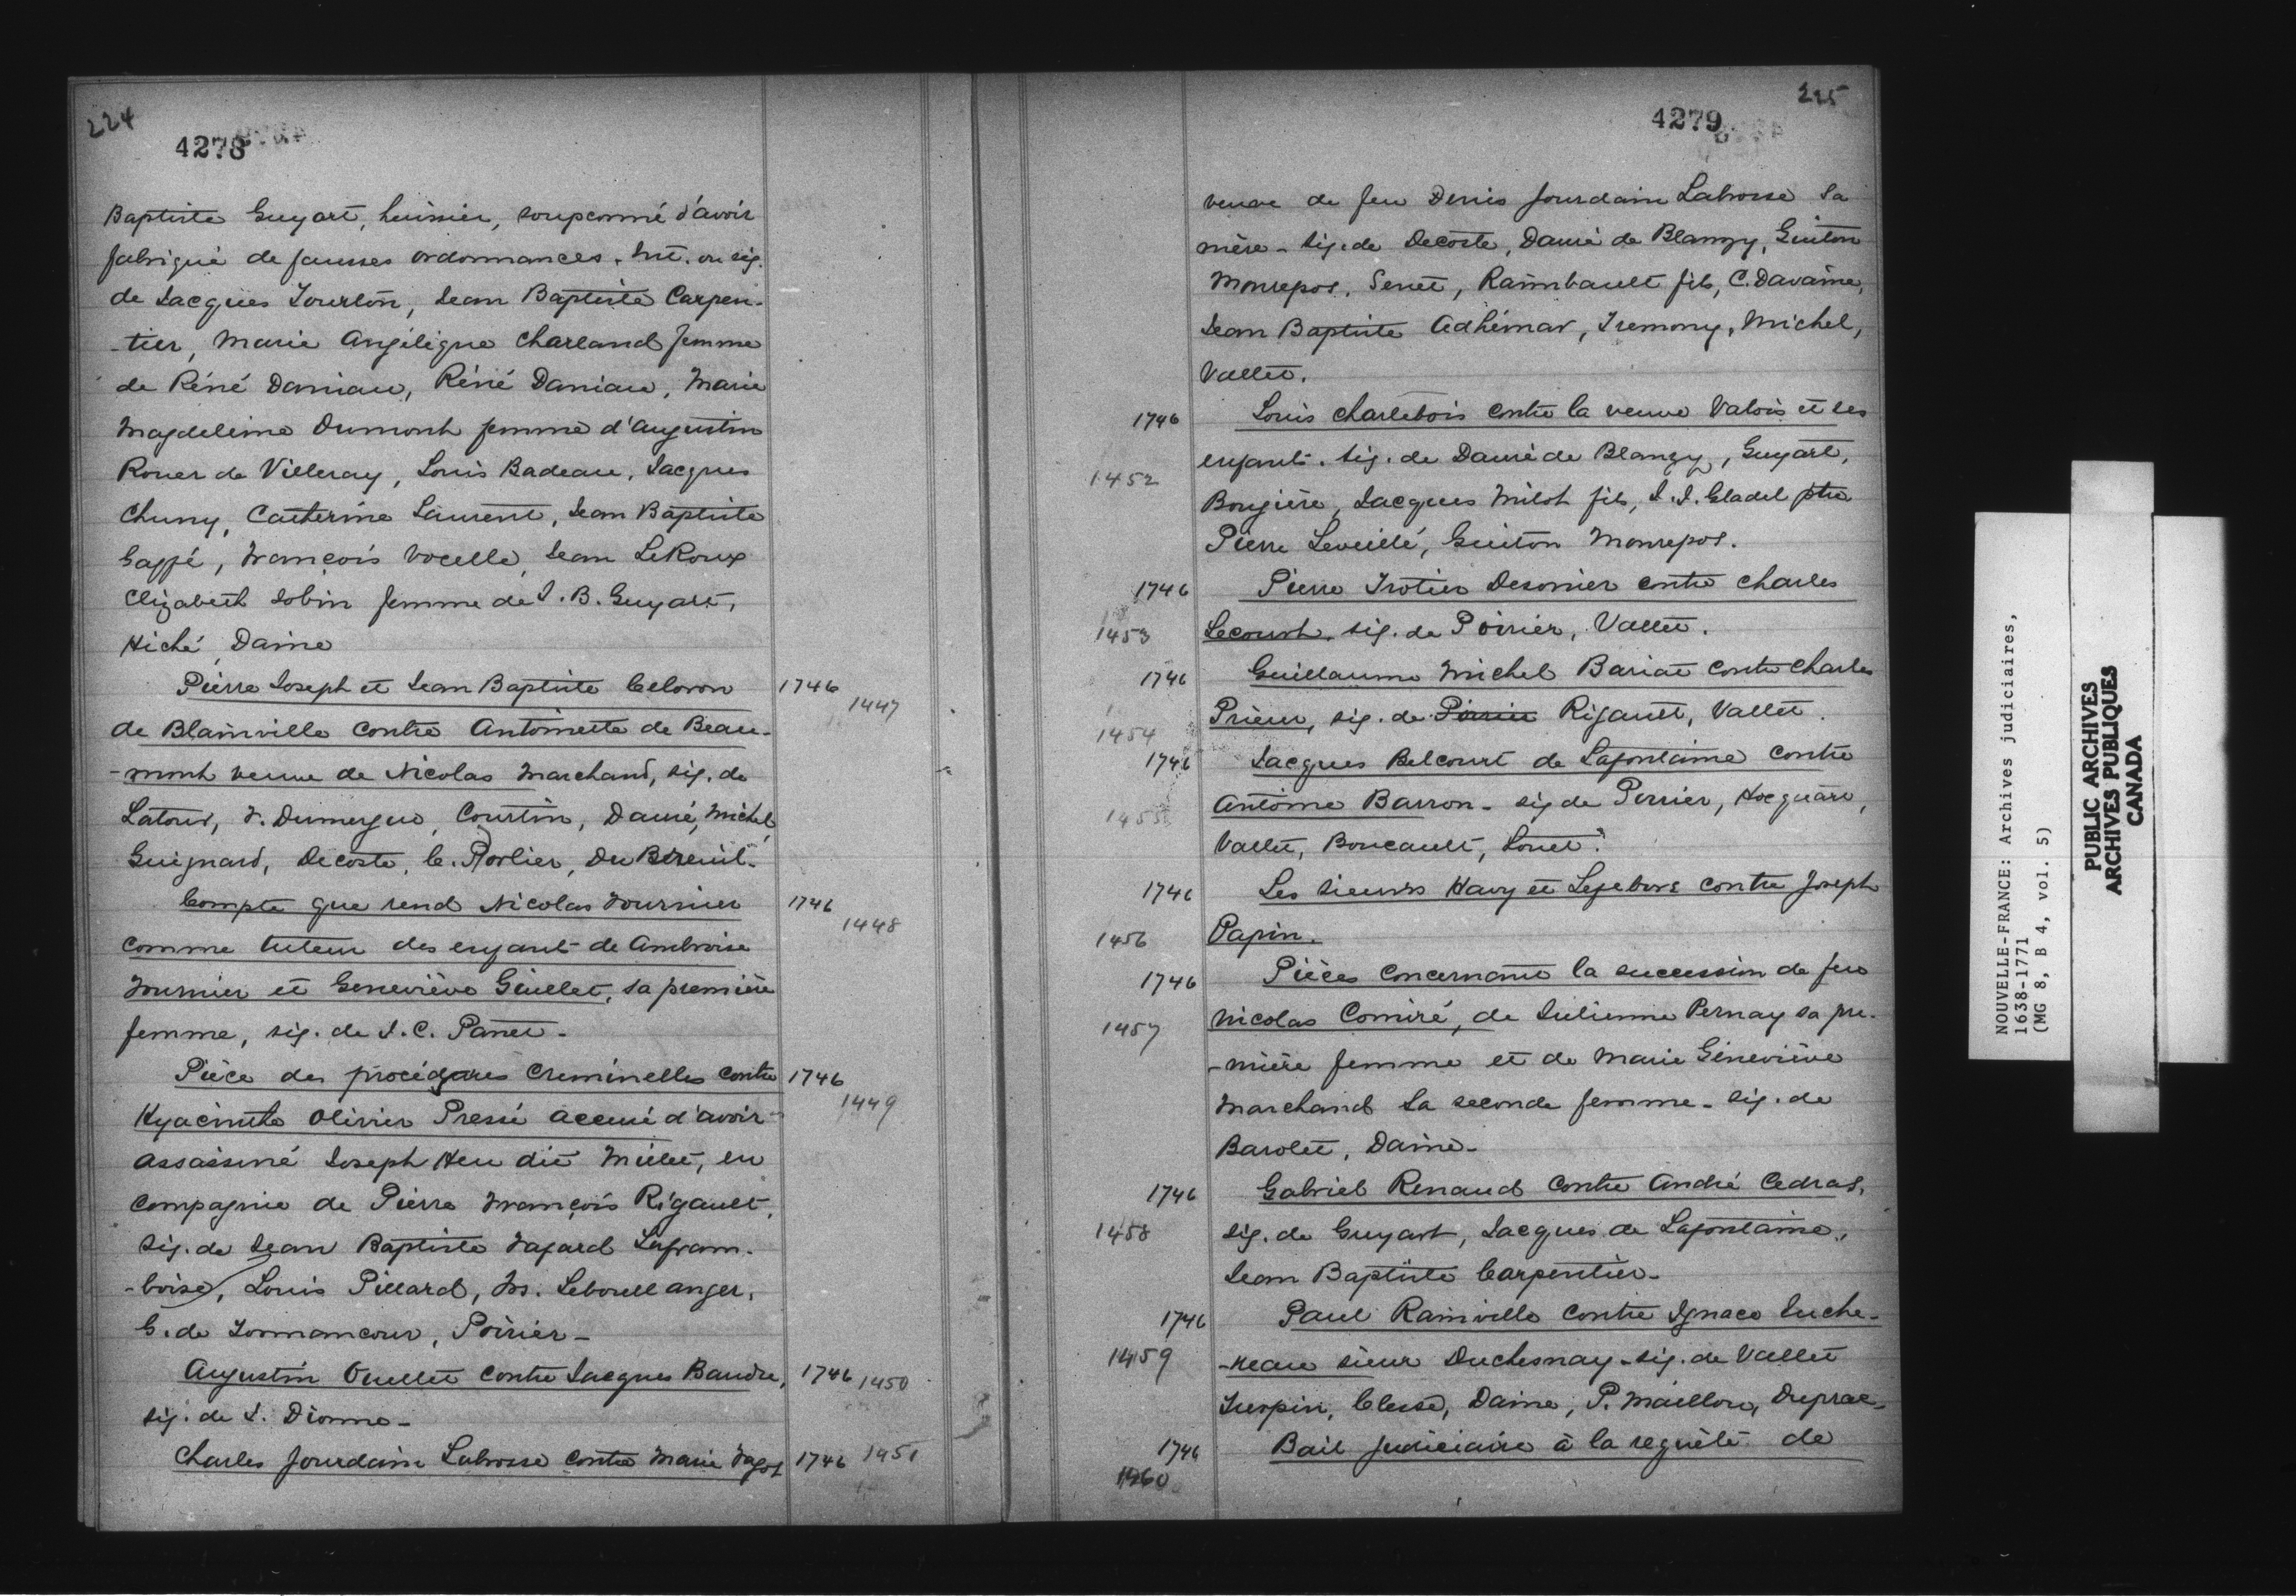 224
4278
Baptiste Guyart, huissier, soupçonné d'avoir
fabriqué de fausses ordonnances. Int. ou sig.
de Jacques Tourlon, Jean Baptiste Carpen-
-tier, Marie Angélique Charland femme
de Réné Daniau, Réné Daniau, Marie
Magdeleine Dumont femme d'Augustin
Rouer de Villeray, Louis Badeau, Jacques
Chuny, Catherine Laurent, Jean Baptiste
Gaffé, François Vocelle, Jean LeRoux
Elizabeth Jobin femme de J. B. Guyart,
Hiché, Daine
Pierre Joseph et Jean Baptiste Celoron 1746 1447
de Blainville contre Antoinette de Beau-
-mont veuve de Nicolas Marchand, sig. de
Latour, F. Dumergue, Courtin, Dauré, Michel,
Guignard, Decoste, C. Porlier, Du Breuil-
Compte que rend Nicolas Fournier 1746 1448
comme tuteur des enfant de Ambroise
Fournier et Geneviève Guillet, sa première
femme, sig. de J. C. Panet-
Pièce des procédures Creminelles contre 1746 1449
Hyacinthe Olivier Pressé accusé d'avoir
assassiné Joseph Heu dit Millet, en
compagnie de Pierre François Rigault,
Sig. de Jean Baptiste Fafard Lafram-
-boise, Louis Pillard, Ls. Leboullanger,
G. de Tonnancour, Poirier-
Augustin Ouellet contre Jacques Baudre, 1746 1450
sig. de J. Dionne-
Charles Jourdain Labrosse contre Marie Fagot 1746 1451
225
4279
veuve de feu Denis Jourdain Labrosse sa
mère - sig. de Decoste, Dauré de Blanzy, Guiton
Monrepos, Senet, Raimbault fils, C. Davaine,
Jean Baptiste Adhémar, Tremony, Michel,
Vallet.
1746 Louis Charlebois contre la veuve Valois et ses
1452 enfants. Sig. de Dauré de Blanzy, Guyart,
Bougière, Jacques Milot fils, J. J. Gladel ptre
Pierre Leveillé, Guiton Monrepos.
1746 Pierre Trotier Desonier contre Charles
1453 Lecourt. sig. de Poirier, Vallet.
1746 Guillaume Michel Bariat contre Charles
1454 Prieur, sig. de Poirier Rigault, Vallet.
1746 Jacques Belcourt de Lafontaine contre
1455 Antoine Barron - sig de Perrier, Hocquart,
Vallet, Boucault, Louet.
1746 Les Sieurs Havy et Lefebvre contre Joseph
1456 Papin.
1746 Pièces concernant la succession de feu
1457 Nicolas Comiré, de Julienne Pernay sa pre-
-mière femme et de Marie Géneviève
Marchand sa seconde femme - sig. de
Barolet, Daine-
1746 Gabriel Renaud contre André Cedras,
1458 sig. de Guyart, Jacques de Lafontaine,
Jean Baptiste Carpentier-
1746 Paul Rainville contre Ignace Juche-
1459 -reau sieur Duchesnay - sig. de Vallet
Turpin, Clesse, Daine, P. Maillou, Duprac-
1746 Bail judiciaire à la requête de
1460
NOUVELLE-FRANCE: Archives judiciaires,
1638-1771
(MG 8, B 4, vol. 5)
PUBLIC ARCHIVES
ARCHIVES PUBLIQUES
CANADA